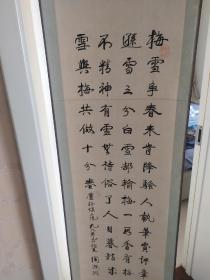 梅雪爭春未肯降騷人執筆費評章
遜雪三分白雪却輸梅一段香有梅
不精神有雪無詩俗了人日暮詩成
雪與梅共做十分春